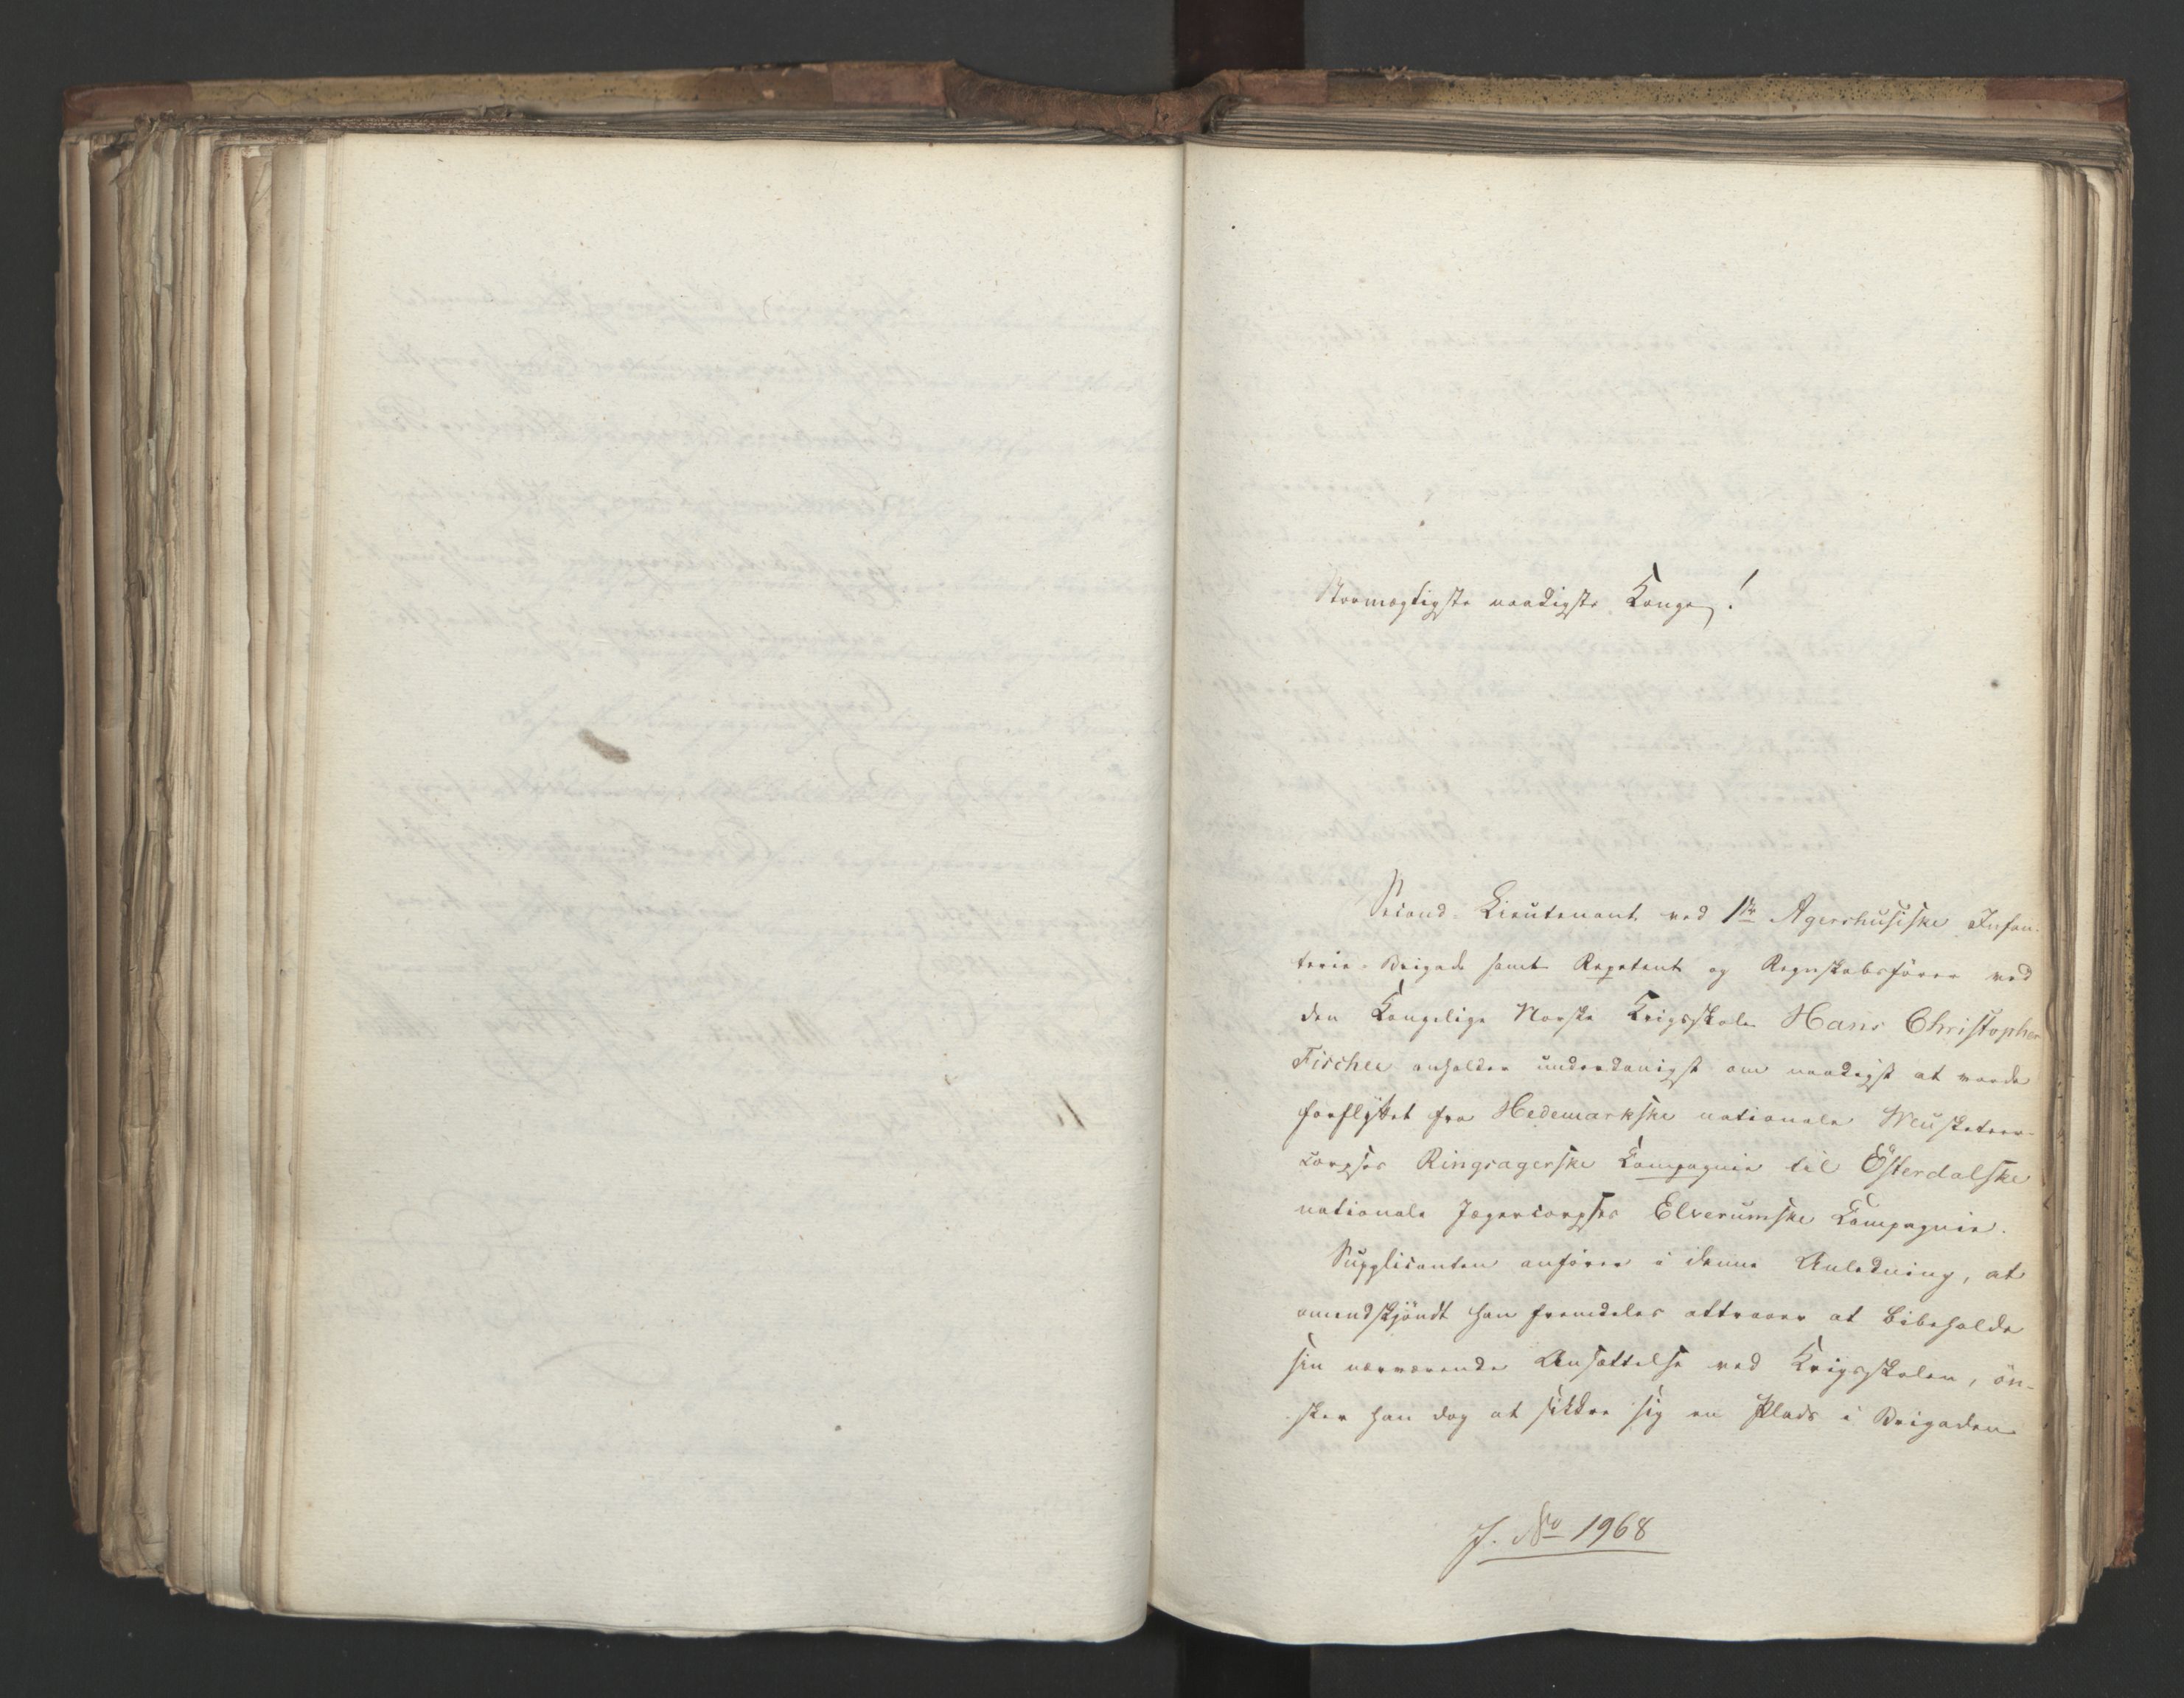 Stormægtigste naadigste Konge!
Second-Lieutenant ved 1ste Agershusiske Infan-
terie-Brigade samt Repetent og Regnskabsfører ved
den Kongelige Norske Krigsskole Hans Christopher
Fischer anholder underdanigst om naadigst at vorde
forflyttet fra Hedemarkske nationale Musketeer-
corpses Ringsagerske Compagnie til Østerdalske
nationale Jægercorpses Elverumske Compagnie.
Supplicanten anfører i denne Anledning, at
omendskjöndt han fremdeles attraaer at bibeholde
sin nærværende Ansættelse ved Krigsskolen, ön-
sker han dog at sikkre sig en Plads i Brigaden
J. No 1968